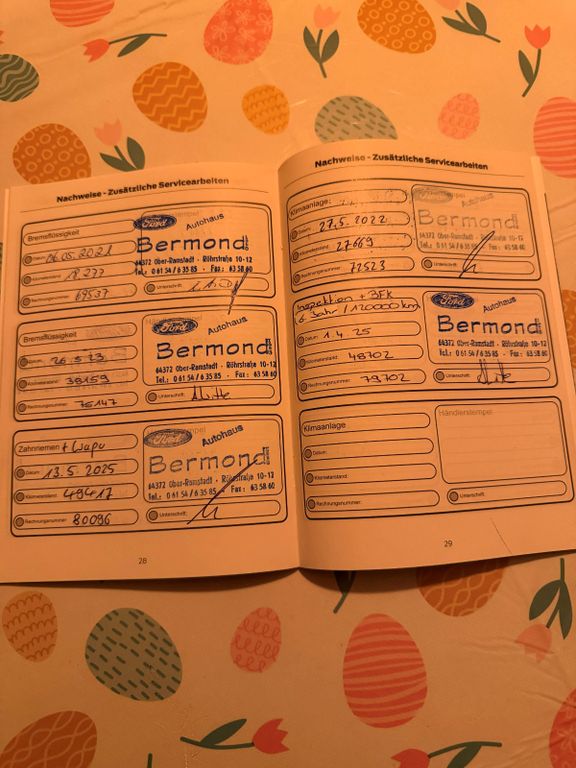 Nachweise - Zusätzliche Servicearbeiten
Bremsflüssigkeit
Datum: 06.05.2021
Kilometerstand: 18.277
Rechnungsnummer: 69537
Händlerstempel
Ford
Autohaus
Bermond GmbH
64372 Ober-Ramstadt · Röhrstraße 10-12
Tel.: 0 61 54 / 6 35 85 · Fax: 63 58 60
Unterschrift:
Bremsflüssigkeit
Datum: 26.5.23
Kilometerstand: 38159
Rechnungsnummer: 75147
Händlerstempel
Ford
Autohaus
Bermond GmbH
64372 Ober-Ramstadt · Röhrstraße 10-12
Tel.: 0 61 54 / 6 35 85 · Fax: 63 58 60
Unterschrift:
Zahnriemen + Wapu
Datum: 13.5.2025
Kilometerstand: 49417
Rechnungsnummer: 80096
Händlerstempel
Ford
Autohaus
Bermond GmbH
64372 Ober-Ramstadt · Röhrstraße 10-12
Tel.: 0 61 54 / 6 35 85 · Fax: 63 58 60
Unterschrift:
28
Nachweise - Zusätzliche Servicearbeiten
Klimaanlage:
Datum: 27.5.2022
Kilometerstand: 27669
Rechnungsnummer: 72523
Händlerstempel
Ford
Autohaus
Bermond GmbH
64372 Ober-Ramstadt · Röhrstraße 10-12
Tel.: 0 61 54 / 6 35 85 · Fax: 63 58 60
Unterschrift:
Inspektion + BFK
6 Jahr / 120000 km
Datum: 1.4.25
Kilometerstand: 48702
Rechnungsnummer: 79702
Ford
Autohaus
Bermond GmbH
64372 Ober-Ramstadt · Röhrstraße 10-12
Tel.: 0 61 54 / 6 35 85 · Fax: 63 58 60
Unterschrift:
Klimaanlage
Datum:
Kilometerstand:
Rechnungsnummer:
Händlerstempel
Unterschrift:
29